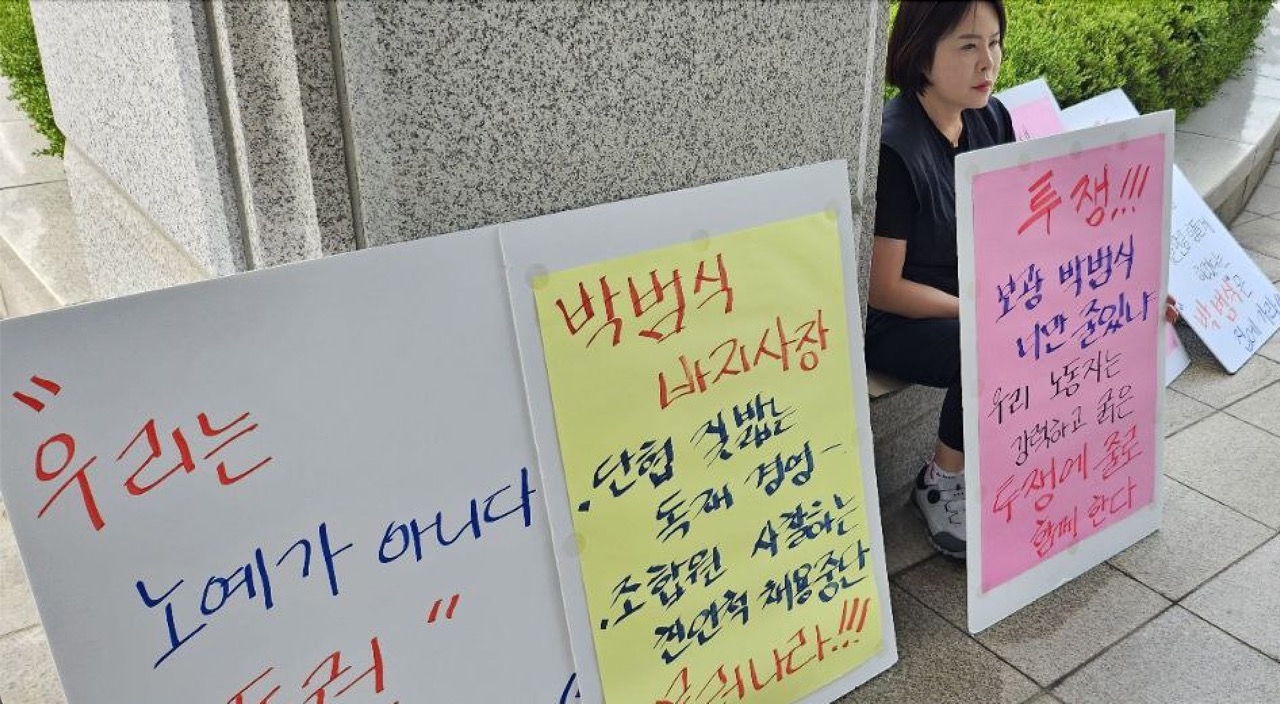 "우리는
노예가 아니다
"
박범식
바지사장
.단협 짓밟는
독재 경영-
.조합원 사찰하는
친인척 채용중단
물러나라!!!
투쟁!!!
보광 박범식
너만 줄있냐
우리 노동자는
강력하고 굵은
투쟁에 줄로
함께 한다
박범식은
집에 가라